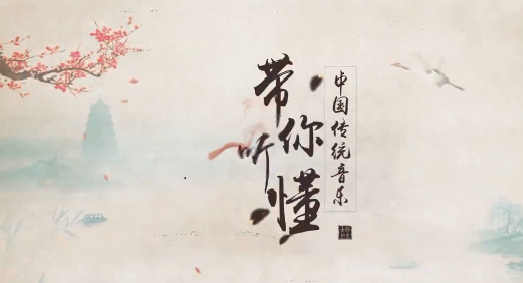 带你听懂
中国传统音乐